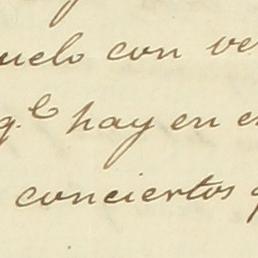 uelo con ve
q.e hay en e
conciertos q